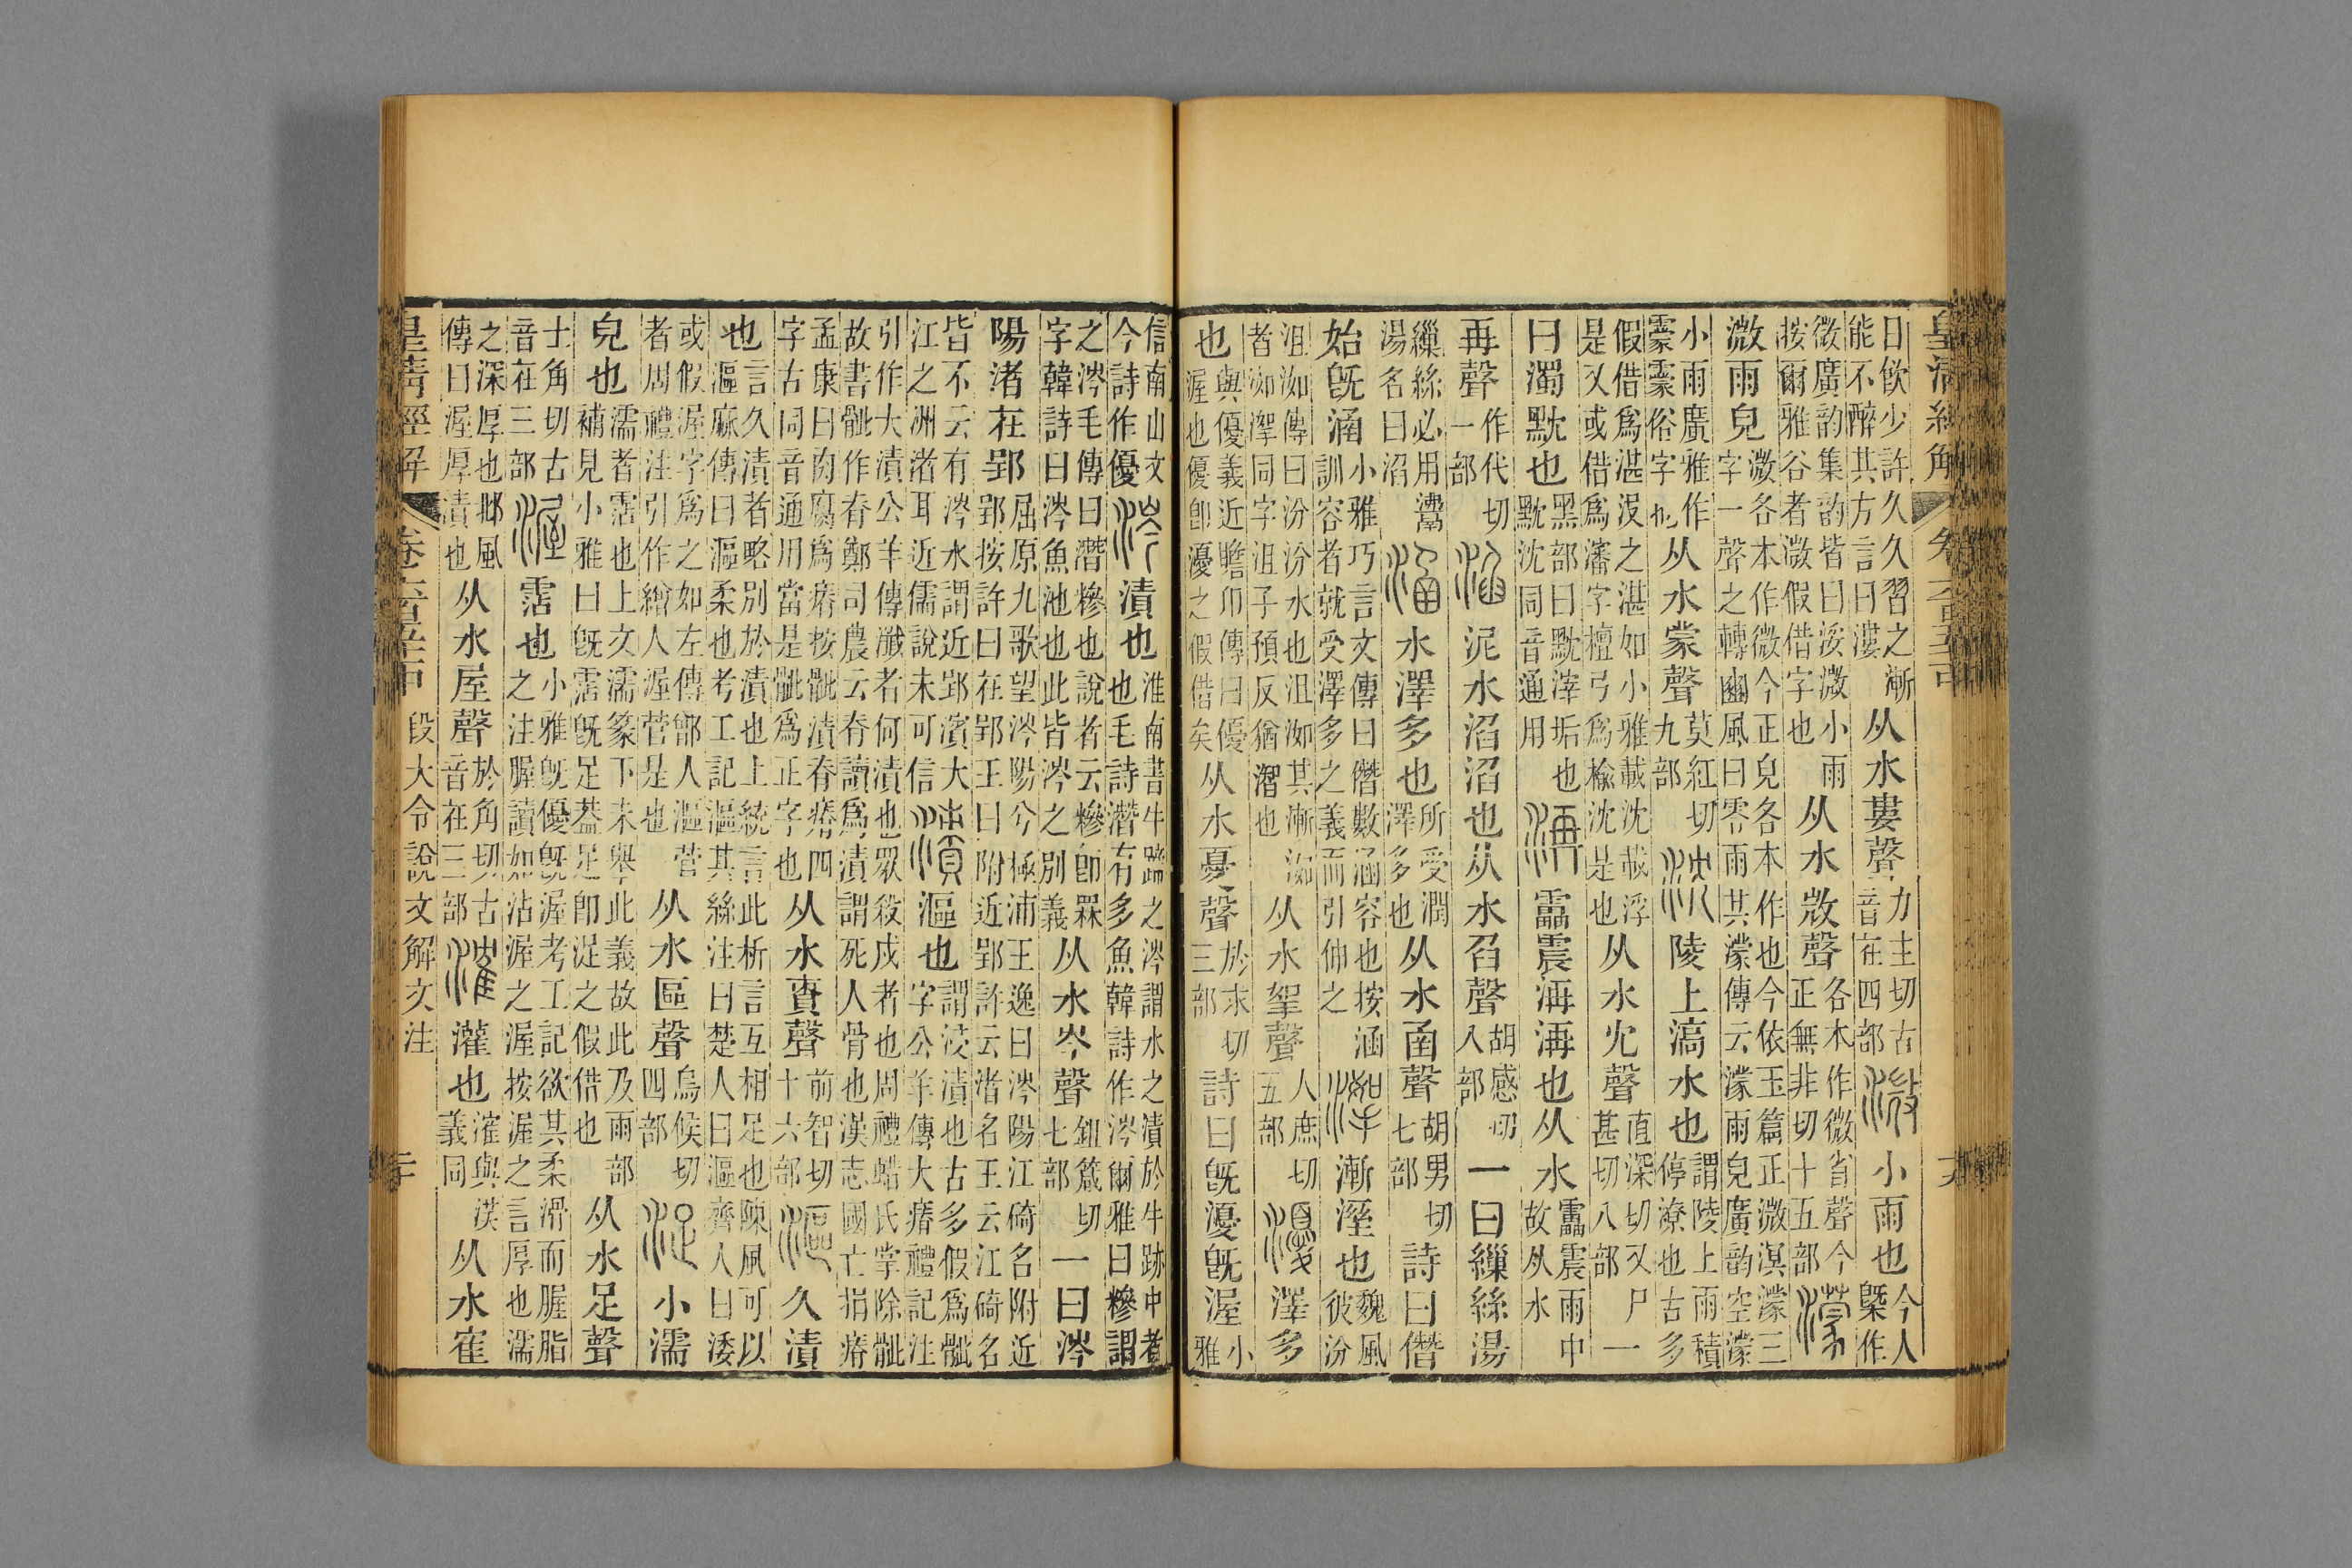 皇清經解 卷六百五十一 十九
日飲少許久久習之漸能不醉其方言曰漊从水婁聲力主切古音在四部溦小雨也今人槩作
微廣韵集韵皆曰浽溦小雨按爾雅谷者溦假借字也从水㪿聲各本作微省聲今正無非切十五部濛
溦雨皃溦各本作微今正皃各本作也今依玉篇正溦溟濛三字一聲之轉豳風曰零雨其濛傳云濛雨皃廣韵空濛
小雨廣雅作霥霥俗字也从水蒙聲莫紅切九部沈陵上滈水也謂陵上雨積停潦也古多
假借爲湛沒之湛如小雅載沈載浮是又或借爲瀋字檀弓爲楡沈是也从水冘聲直深切又尸甚切八部一
曰濁黕也黑部曰黕滓垢也黕沈同音通用洅靁震洅洅也从水靁震雨中故从水
再聲作代切一部淊泥水淊淊也从水臽聲胡感切八部一曰繅絲湯
繅絲必用鬻湯名曰淊涵水澤多也所受潤澤多也从水圅聲胡男切七部詩曰僭
始旣涵小雅巧言文傳曰僭數涵容也按涵訓容者就受澤多之義而引伸之漸溼也魏風彼汾
沮洳傳曰汾汾水也沮洳其漸洳者洳挐同字沮子預反猶也从水挐聲人庶切五部瀀澤多
也與優義近瞻卬傳曰優渥也優卽瀀之假借矣从水憂聲於求切三部詩曰旣瀀旣渥小雅
信南山文今詩作優涔漬也淮南書牛蹏之涔謂水之漬於牛跡中者也毛詩潛有多魚韓詩作涔爾雅曰槮謂
之涔毛傳曰潛槮也說者云槮卽罧字韓詩曰涔魚池也此皆涔之別義从水岑聲鉏箴切七部一曰涔
陽渚在郢屈原九歌望涔陽兮極浦王逸曰涔陽江碕名附近郢按許曰在郢王曰附近郢許云渚名王云江碕名
皆不云有涔水謂近郢濱大江之洲渚耳近儒說未可信漬漚也謂浸漬也古多假爲骴字公羊傳大瘠禮記注
引作大漬公羊傳瀸者何漬也眾殺戍者也周禮蜡氏掌除骴故書骴作脊鄭司農云脊讀爲漬謂死人骨也漢志國亡捐瘠
孟康曰肉腐爲瘠按骴漬脊瘠四字古同音通用當是骴爲正字也从水責聲前智切十六部漚久漬
也言久漬者略別於漬也上統言此析言互相足也陳風可以漚麻傳曰漚柔也考工記漚其絲注曰楚人曰漚齊人曰涹
或假渥字爲之如左傳鄫人漚菅者周禮注引作繒人渥菅是也从水區聲烏候切四部浞小濡
皃也濡者霑也上文濡篆下未舉此義故此乃雨部補見小雅曰旣霑旣足葢足卽浞之假借也从水足聲
士角切古音在三部渥霑也小雅旣優旣渥考工記欲其柔滑而腛脂之注腛讀如沾渥之渥按渥之言厚也濡
之深厚也邶風傳曰渥厚漬也从水屋聲於角切古音在三部灌也義同从水隺
皇清經解 段大令說文解文注 二十